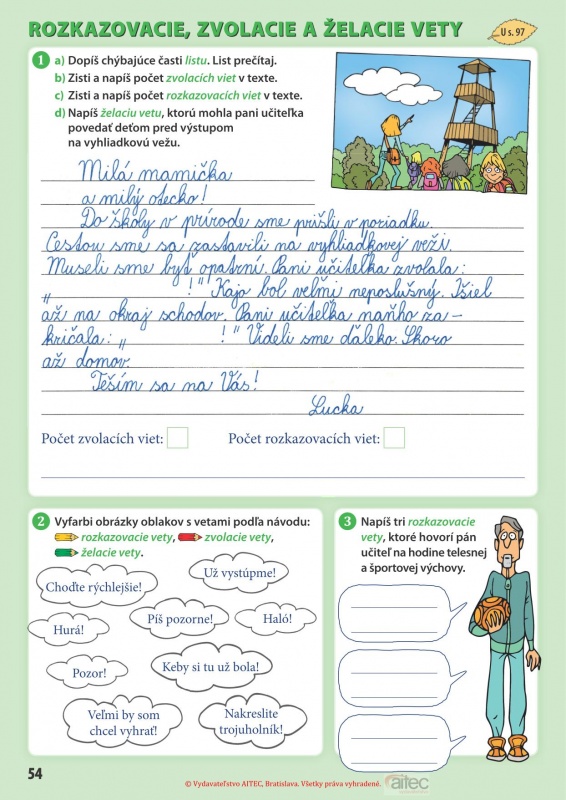 ROZKAZOVACIE, ZVOLACIE A ŽELACIE VETY
U s. 97
1 a) Dopíš chýbajúce časti listu. List prečítaj.
b) Zisti a napíš počet zvolacích viet v texte.
c) Zisti a napíš počet rozkazovacích viet v texte.
d) Napíš želaciu vetu, ktorú mohla pani učiteľka
povedať deťom pred výstupom
na vyhliadkovú vežu.
Milá mamička
a milý otecko!
Do školy v prírode sme prišli v poriadku.
Cestou sme sa zastavili na vyhliadkovej veži.
Museli sme byť opatrní. Pani učiteľka zvolala:
„ !" Kajo bol veľmi neposlušný. Išiel
až na okraj schodov. Pani učiteľka naňho za-
kričala: „ !" Videli sme ďaleko. Skoro
až domov.
Teším sa na Vás!
Lucka
Počet zvolacích viet: Počet rozkazovacích viet:
2 Vyfarbi obrázky oblakov s vetami podľa návodu:
rozkazovacie vety, zvolacie vety,
želacie vety.
Choďte rýchlejšie!
Už vystúpme!
Hurá!
Píš pozorne!
Haló!
Pozor!
Keby si tu už bola!
Veľmi by som
chcel vyhrať!
Nakreslite
trojuholník!
3 Napíš tri rozkazovacie
vety, ktoré hovorí pán
učiteľ na hodine telesnej
a športovej výchovy.
54
© Vydavateľstvo AITEC, Bratislava. Všetky práva vyhradené.
aitec